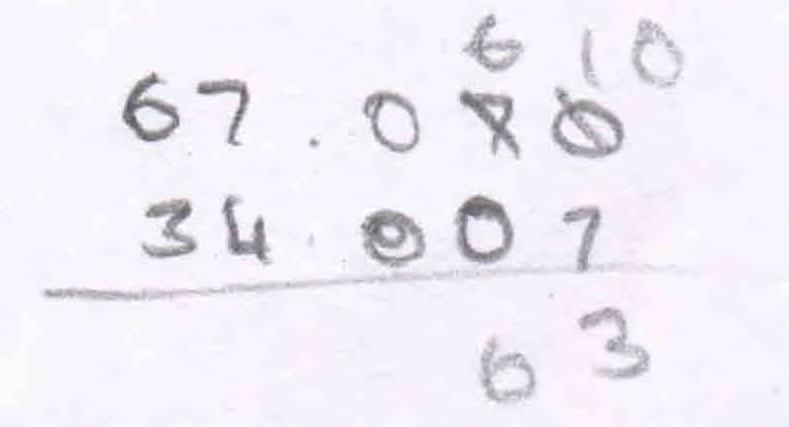 6 10
67.070
34.007
63